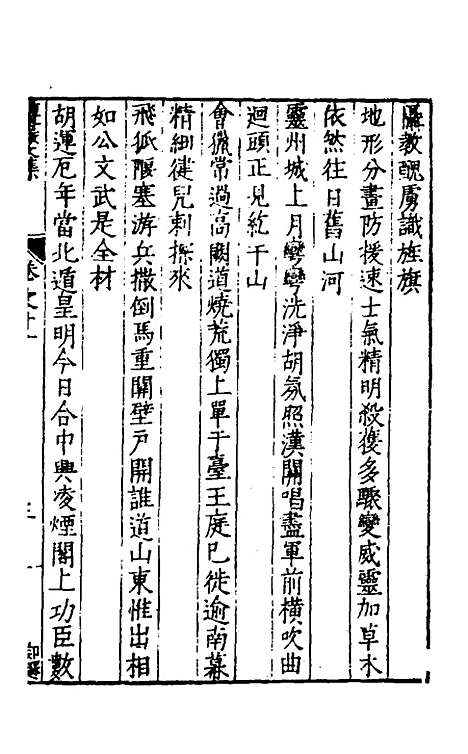 教醜虜識旌旗
地形分畫防援速士氣精明殺獲多驟變威靈加草木
依然往日舊山河
靈州城上月彎彎洗淨胡氛照漢關唱盡軍前橫吹曲
迴頭正見紇干山
會獵常過高闕道燒荒獨上單于臺王庭已徙逾南幕
精細健兒刺探來
飛狐隁塞游兵撒倒馬重關壁戸開誰道山東惟出相
如公文武是全材
胡運厄年當北遁皇明今日合中興凌煙閣上功臣數
集
卷之十一
三